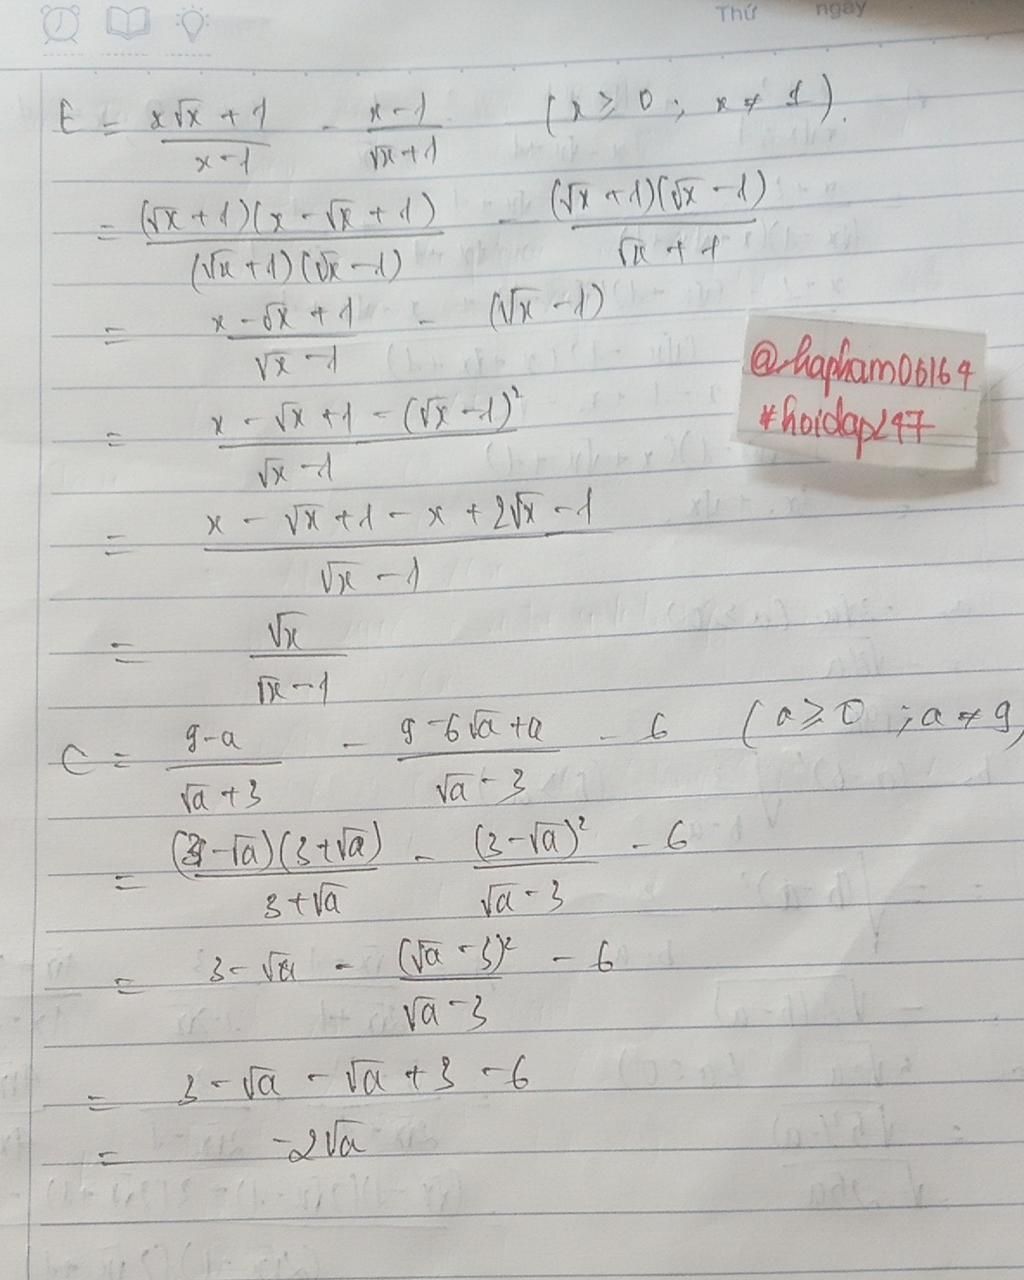 Thứ ngày
E = \frac{x√x + 1}{x - 1} - \frac{x - 1}{√x + 1} (x ≥ 0 ; x ≠ 1).
= \frac{(√x + 1)(x - √x + 1)}{(√x + 1)(√x - 1)} - \frac{(√x + 1)(√x - 1)}{√x + 1}
= \frac{x - √x + 1}{√x - 1} - (√x - 1)
@hapham06164
#hoidap247
= \frac{x - √x + 1 - (√x - 1)²}{√x - 1}
= \frac{x - √x + 1 - x + 2√x - 1}{√x - 1}
= \frac{√x}{√x - 1}
C = \frac{9 - a}{√a + 3} - \frac{9 - 6√a + a}{√a - 3} - 6 (a ≥ 0 ; a ≠ 9)
= \frac{(3 - √a)(3 + √a)}{3 + √a} - \frac{(3 - √a)²}{√a - 3} - 6
= 3 - √a - \frac{(√a - 3)²}{√a - 3} - 6
= 3 - √a - √a + 3 - 6
= -2√a